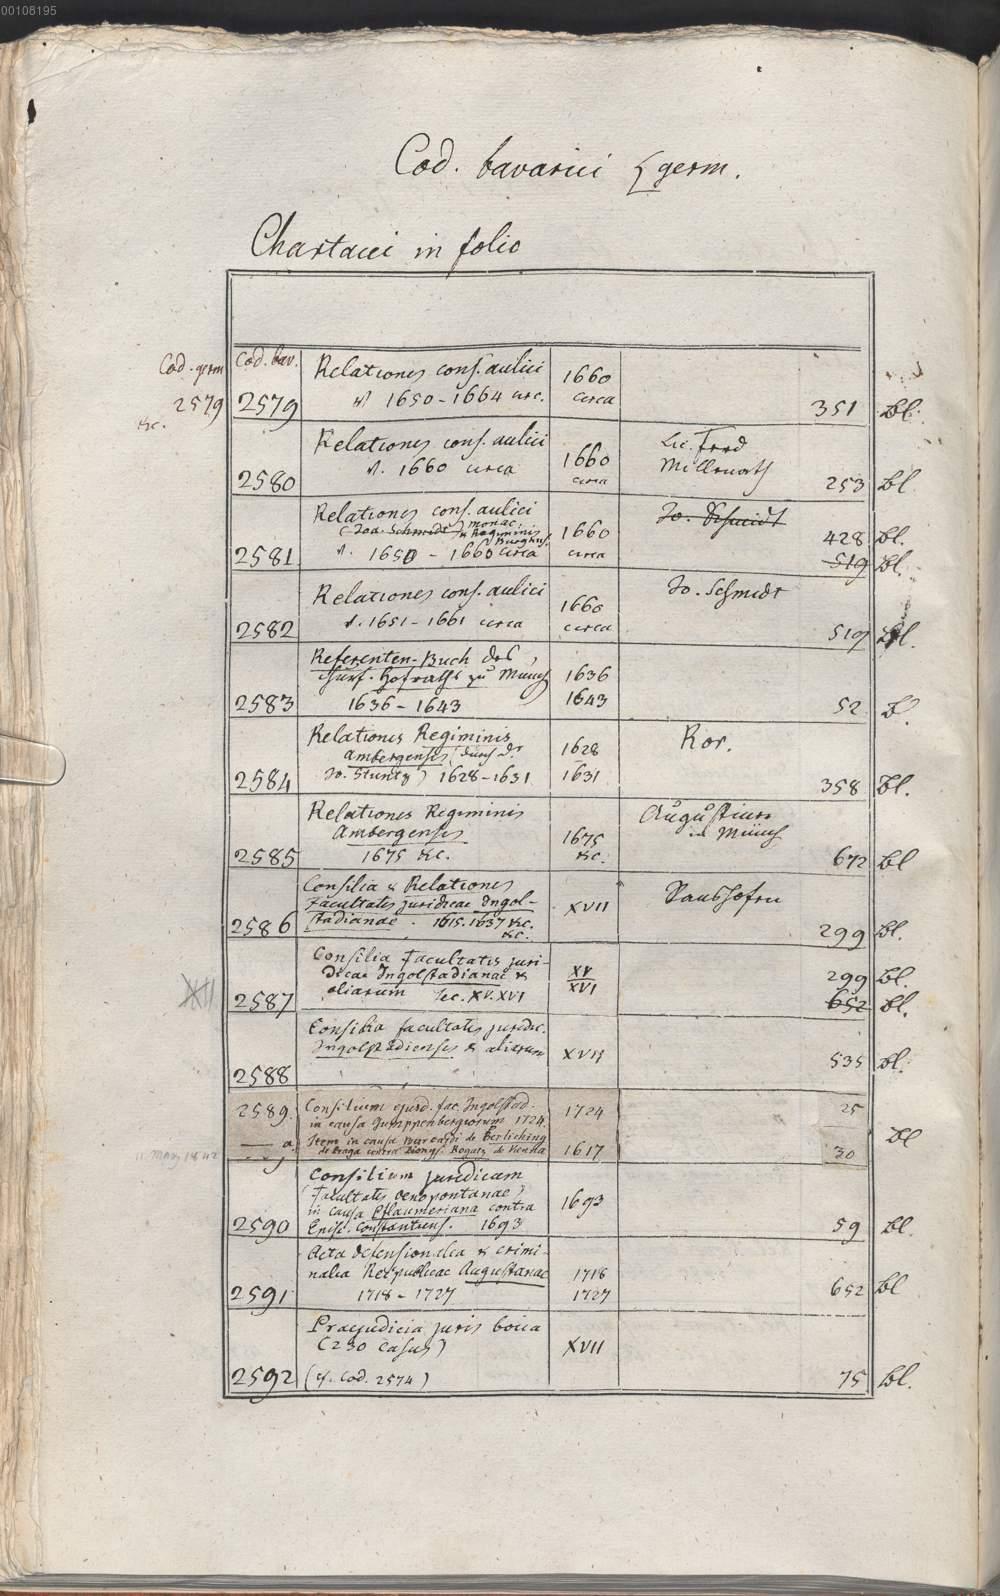 00108195
Cod. bavarici germ.
Chartacei in folio
Cod. germ
2579
&c.
Cod. bav.
2579
Relationes cons. aulici
1650 - 1664 circ.
1660
circa
351 Bl.
2580
Relationes cons. aulici
1660 circa
1660
circa
Lic. Ferd
253 Bl
2581
Relationes cons. aulici
(Joa. Schmidt) monac.
& Regiminis
Burghus.
1650 - 1660 circa
1660
circa
Jo. Schmidt
428 Bl.
519 Bl.
2582
Relationes cons. aulici
1651 - 1661 circa
1660
circa
Jo. Schmidt
519 Bl.
2583
Referenten-Buch des
churf. Hofraths zu Münch
1636 - 1643
1636
1643
52
2584
Relationes Regiminis
Ambergensis (durch Dr
Jo. Sturtz) 1628-1631
1628
1631
Ror.
358 Bl.
2585
Relationes Regiminis
Ambergensis
1675 &c.
1675
&c.
Augustiner
in Münch
672 Bl
2586
Consilia & Relationes
Facultatis juridicae Ingol-
stadianae. 1615. 1637 &c.
&c.
XVII
Ranshofen
299 Bl.
XII
2587
Consilia Facultatis juri-
dicae Ingolstadianae &
aliarum Sec. XV. XVI
XV
XVI
299 Bl.
652 Bl.
2588
Consilia facultatis juridic.
Ingolstadiensis & aliarum
XVII
535 Bl.
2589.
Consilium ejusd. fac. Ingolstad.
in causa Gumppenbergiorum 1724.
1724
25
Bl
11 May 1842
a.
Item in causa Burcardi de Berliching
de Praga contra Dionys. Bogatz de Vienna
1617
30
2590
Consilium juridicum
(Facultatis Oenopontanae)
in causa Pflaumeriana contra
Episc. Constantiens. 1693
1693
59 Bl.
2591
Acta defensionalia & crimi-
nalia Reipublicae Augustanae
1718 - 1727
1718
1727
652 Bl
2592
Praejudicia juris boica
(230 Casus)
(cf. Cod. 2574)
XVII
75 Bl.